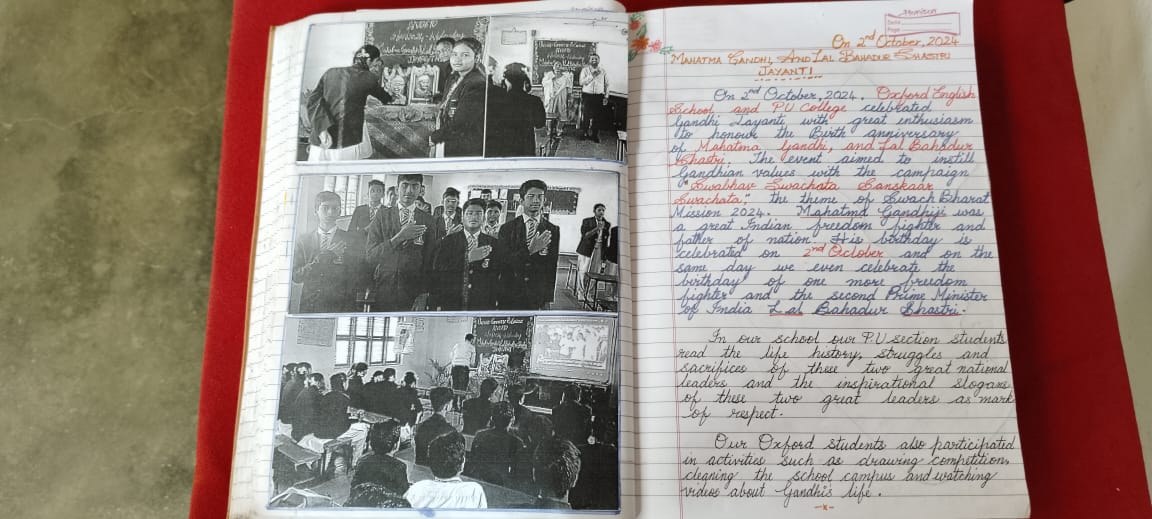 On 2nd October, 2024
MAHATMA GANDHI, AND LAL BAHADUR SHASTRI
JAYANTI
On 2nd October, 2024. Oxford English
School and PU College celebrated
Gandhi Jayanti with great enthusiasm
to honour the Birth anniversary
of Mahatma Gandhi, and Lal Bahadur
Shastri. The event aimed to instill
Gandhian values with the campaign
"Swabhav Swachata Sanskaar
Swachata," the theme of Swach Bharat
Mission 2024. Mahatma Gandhiji was
a great Indian freedom fighter and
father of nation. His birthday is
celebrated on 2nd October and on the
same day we even celebrate the
birthday of one more freedom
fighter and the second Prime Minister
of India Lal Bahadur Shastri.
In our school our P.U section students
read the life history, struggles and
sacrifices of these two great national
leaders and the inspirational slogans
of these two great leaders as mark
of respect.
Our Oxford students also participated
in activities such as drawing competition,
cleaning the school campus and watching
videos about Gandhi's life.